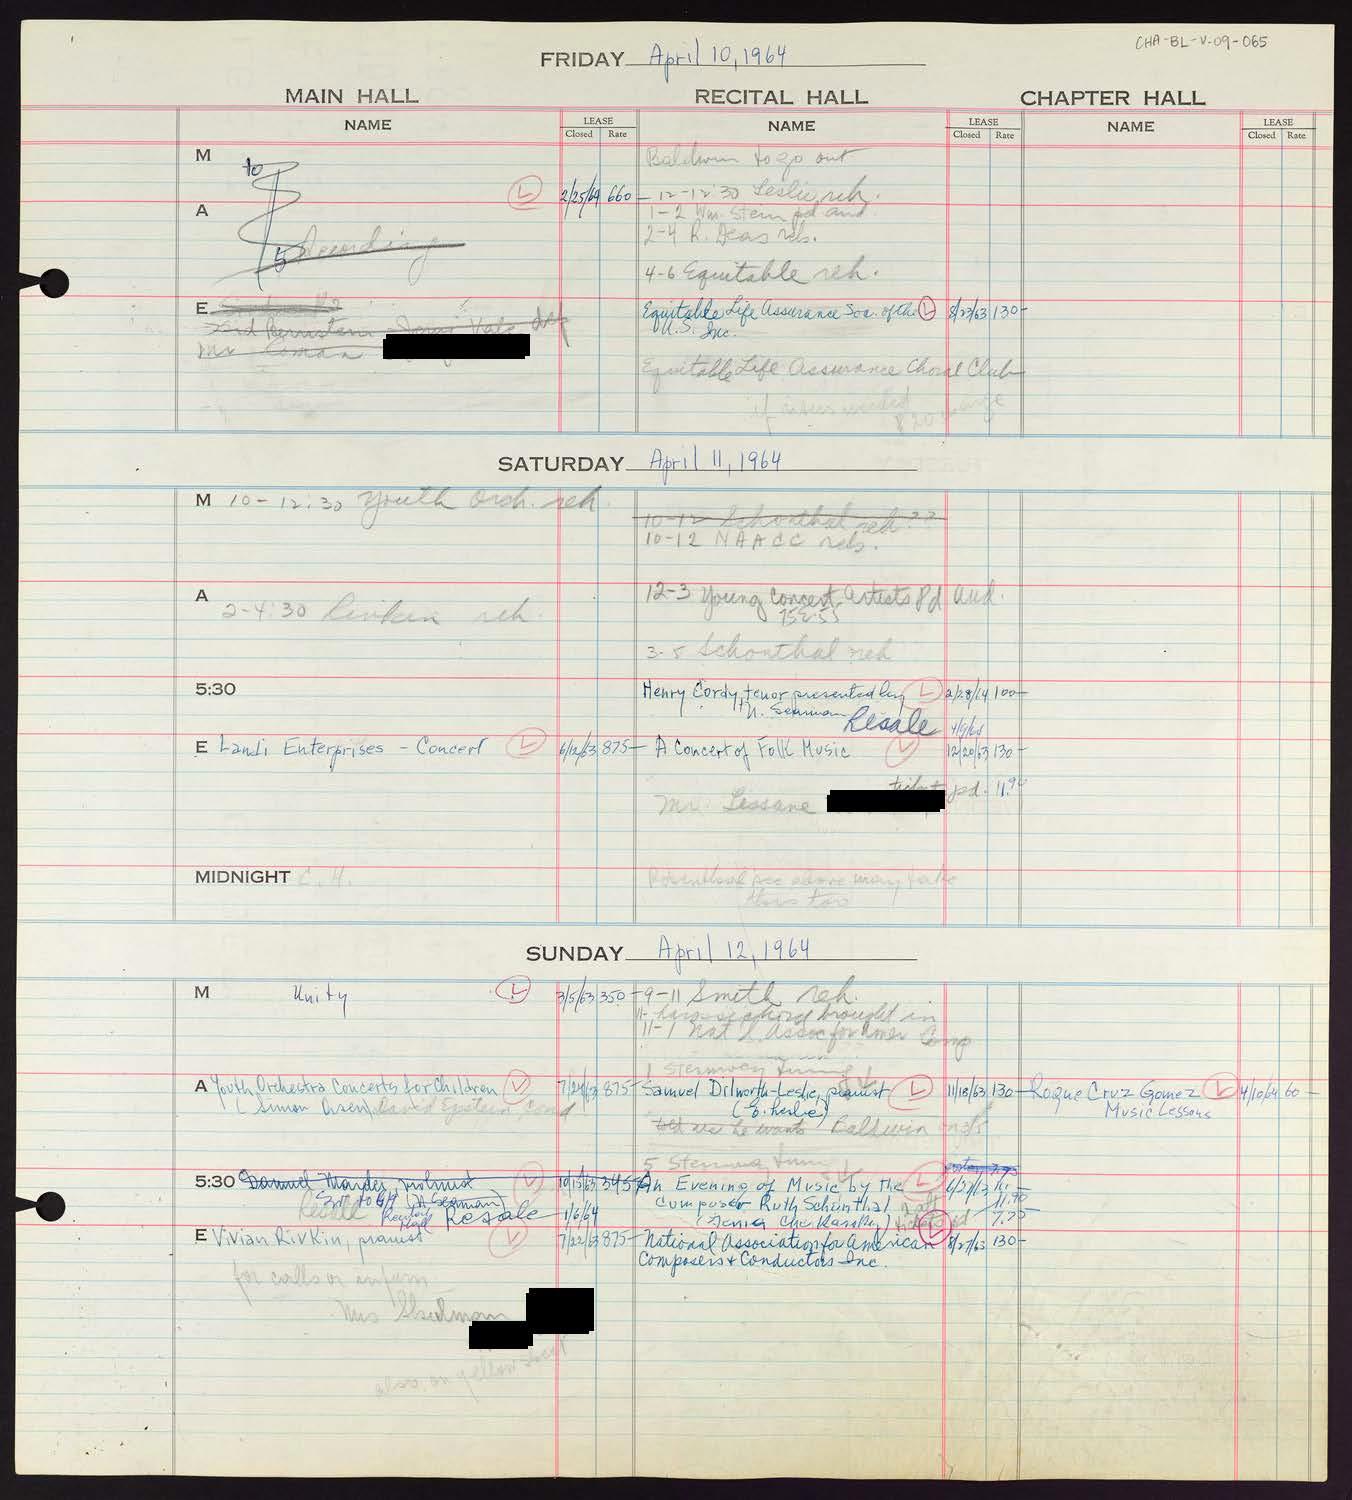 CHA-BL-V-09-065
FRIDAY April 10, 1964
MAIN HALL RECITAL HALL CHAPTER HALL
NAME LEASE Closed Rate NAME LEASE Closed Rate NAME LEASE Closed Rate
M Baldwin to go out
to
L 2/25/64 660- 12-12:30 Leslie reh.
A 1-2 Wm. Stein pd aud.
2-4 R. Deas reh.
5 Recording
4-6 Equitable reh.
E Equitable Life Assurance Soc. of the L 8/23/63 130-
U.S. Inc.
Mr Coman
Equitable Life Assurance Choral Club
SATURDAY April 11, 1964
M 10-12:30 Youth Orch. reh.
10-12 Schonthal reh??
10-12 NAACC reh.
A 12-3 Young Concert Artists Pd Aud.
2-4:30 Rivken reh.
3-5 Schonthal reh
5:30 Henry Cordy, tenor presented by L 2/28/64 100-
N. Seaman Resale
E Landi Enterprises - Concert L 6/12/63 875- A Concert of Folk Music L 12/20/63 130-
tickets pd. 11.90
Mr. Lessane
MIDNIGHT C.H. Rosenthal see above may take
this too
SUNDAY April 12, 1964
M Unity L 3/5/63 350- 9-11 Smith reh.
harpsichord brought in
11-1 Nat'l. Assoc for Amer Comp
1 Steinway tuning
A Youth Orchestra Concerts for Children L 875- Samuel Dilworth-Leslie, pianist L 11/18/63 130- Roque Cruz Gomez L 4/10/64 60-
David Epstein, Cond (E. Leslie) Music Lessons
told us he wants Baldwin
5 Steinway tuning
5:30 Samuel Marder, violinist 10/15/63 345- An Evening of Music by the L
(N Seaman) Composer Ruth Schonthal 11.90
Resale Resale 1/6/64 tickets pd 7.75
E Vivian Rivkin, pianist L 7/22/63 875- National Association for American L 8/27/63 130-
Composers & Conductors Inc.
for calls or inform
Mrs
also on yellow sheet